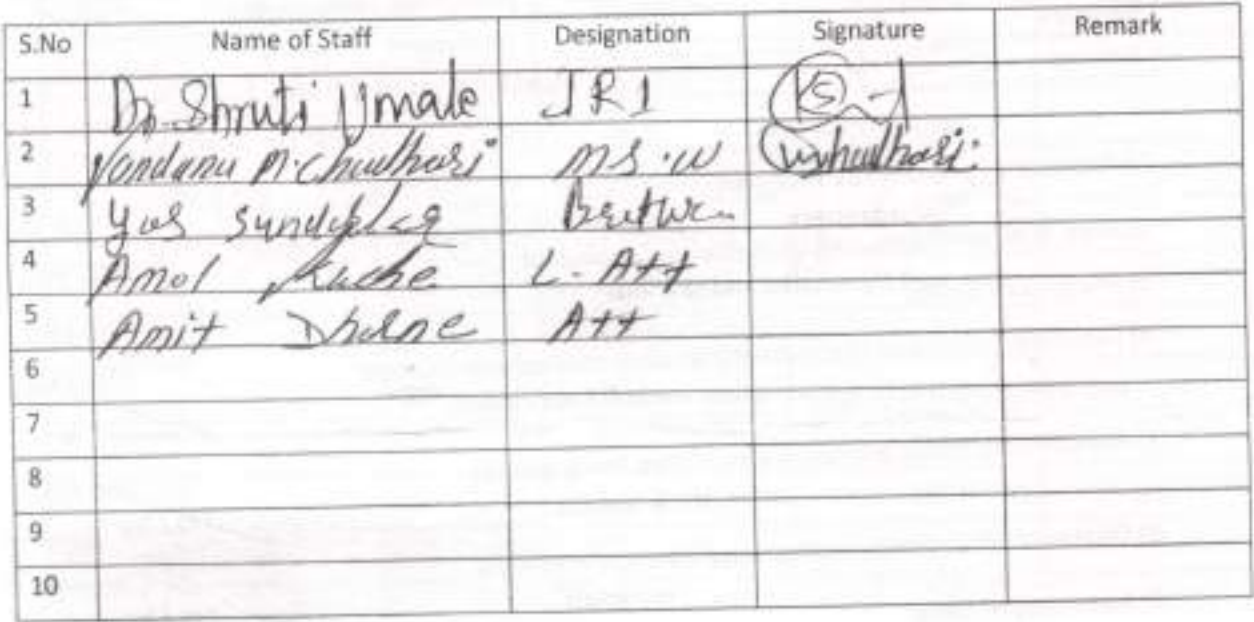 S.No Name of Staff Designation Signature Remark
1 Dr. Shruti Umale JR1
2 Vandana M. Chudhari M.S.W Vchudhari
3 Yas
4 Amol L. Att
5 Amit Dhalne Att
6
7
8
9
10